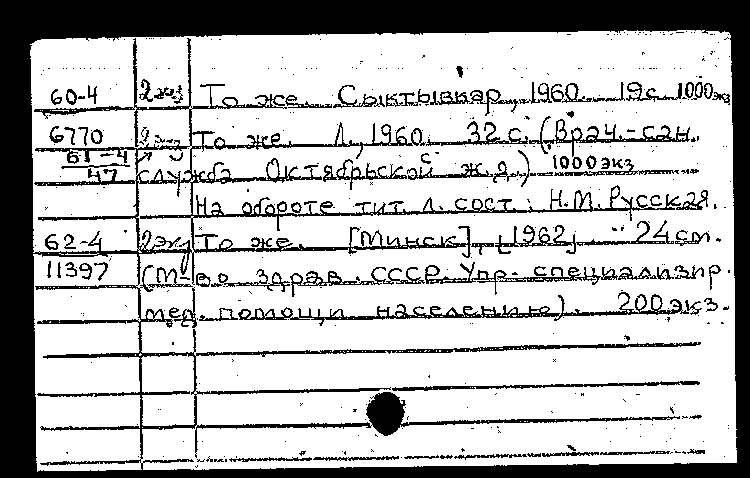 60-4 2экз То же. Сыктывкар, 1960. 19с. 1000экз
6770 2экз То же. Л., 1960. 32 с. (Врач.-сан.
61-4 служба Октябрьской ж.д.) 1000экз
47
На обороте тит. л. сост.: Н.М. Русская.
62-4 2экз То же. [Минск], [1962]. 24см.
11397 (М-во здрав. СССР. Упр. специализир.
мед. помощи населению). 200экз.